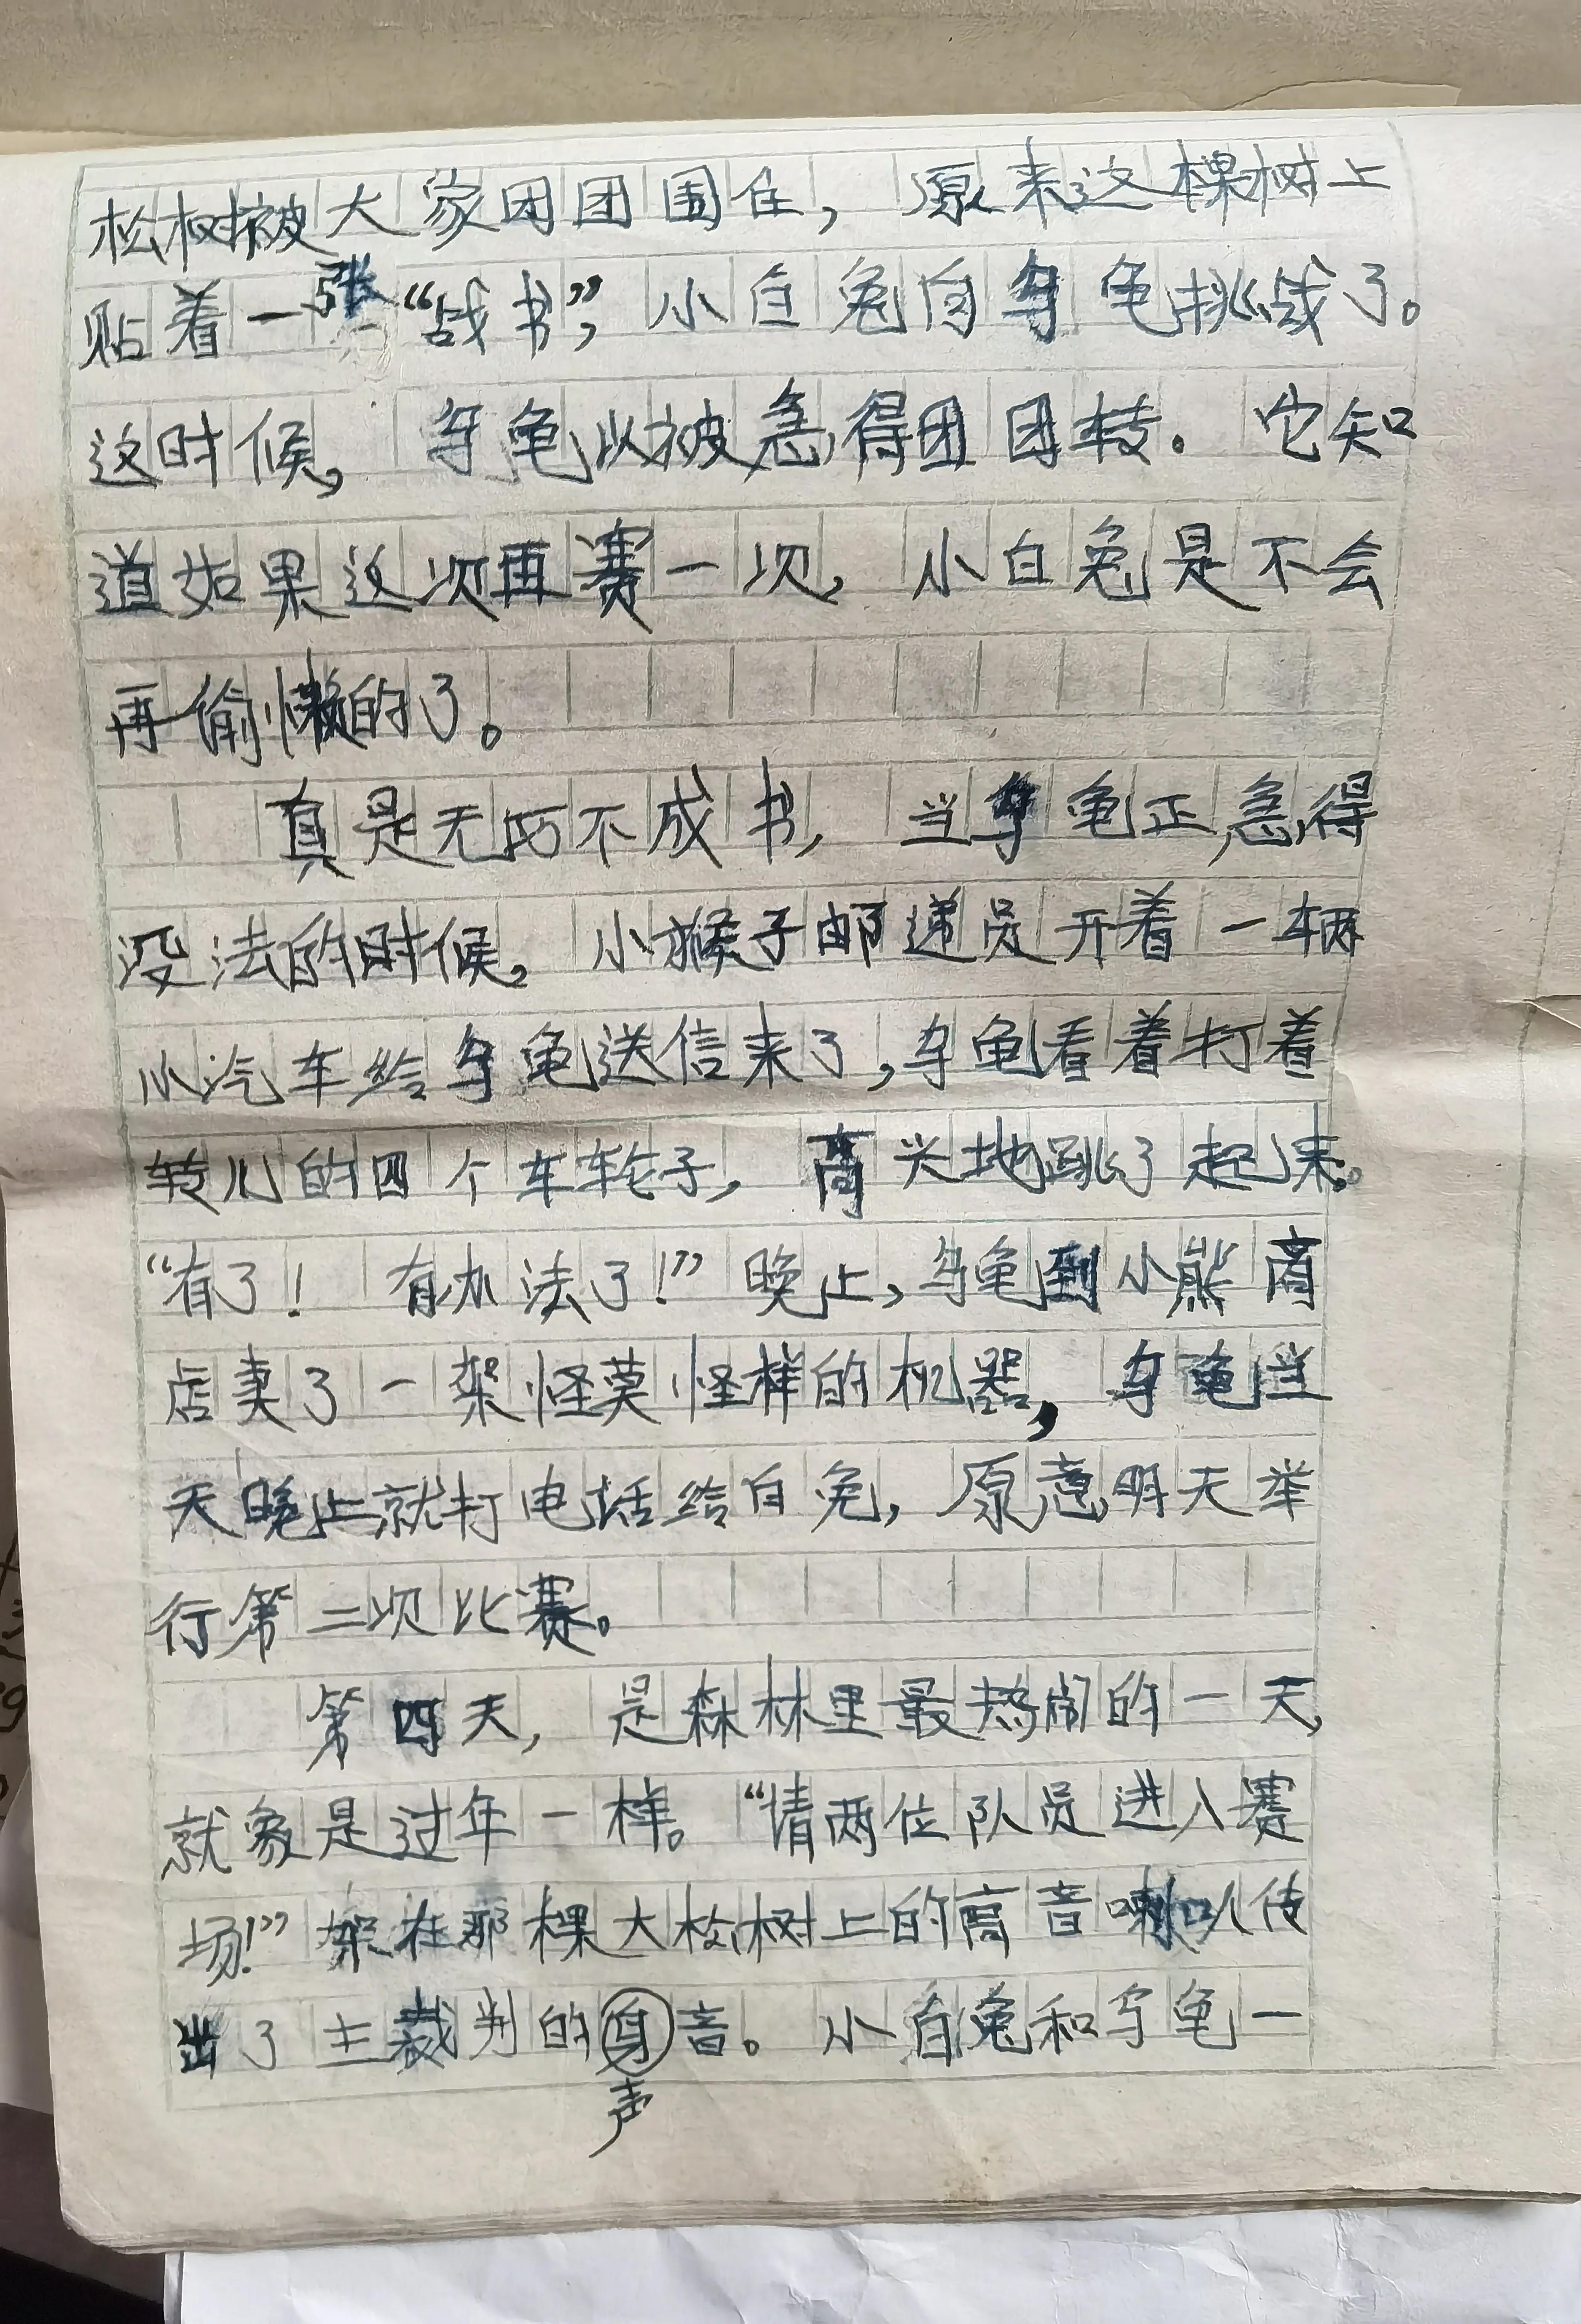 松树被大家团团围住，原来这棵树上
贴着一张“战书”，小白兔向乌龟挑战了。
这时候，乌龟以被急得团团转。它知
道如果这次再赛一次，小白兔是不会
再偷懒的了。
真是无巧不成书，当乌龟正急得
没法的时候，小猴子邮递员开着一辆
小汽车给乌龟送信来了，乌龟看着打着
转儿的四个车轮子，高兴地跳了起来。
“有了！有办法了！”晚上，乌龟到小熊商
店卖了一架怪莫怪样的机器，乌龟当
天晚上就打电话给白兔，原意明天举
行第二次比赛。
第四天，是森林里最热闹的一天，
就象是过年一样。“请两位队员进入赛
场！”架在那棵大松树上的高音喇叭传
出了主裁判的身音。小白兔和乌龟一
声